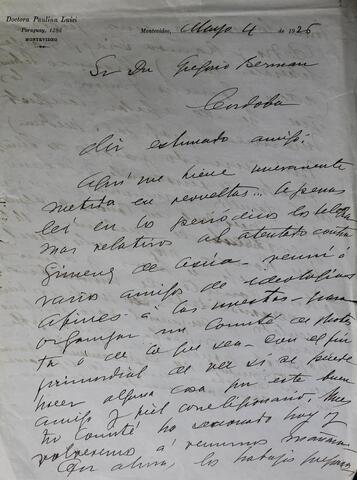 Doctora Paulina Luisi
Paraguay, 1286
MONTEVIDEO
Montevideo, Mayo 4 de 1926
Sr Dr Gregorio Berman
Cordoba
Mi estimado amigo:
Aquí me tiene nuevamente
metida en revueltas... Apenas
leí en los periódicos los telegra
mas relativos al atentado contra
Gimenez de Asúa - reuní á
varios amigos de ideologías
afines á las nuestras - para
organizar un Comité de Protes
ta ó de lo que sea - con el fin
primordial de ver si se puede
hacer alguna cosa por este buen
amigo y fiel correligionario. Nues
tro Comité ha sesionado hoy y
volveremos á reunirnos mañana
Por ahora, los trabajos